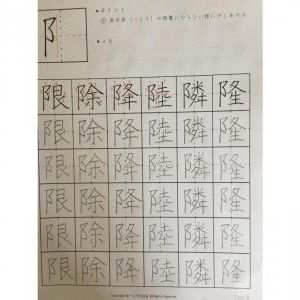 阝
●ポイント
●メモ
限除降陸隣隆
限除降陸隣隆
限除降陸隣隆
限除降陸隣隆
限除降陸隣隆
限除降陸隣隆